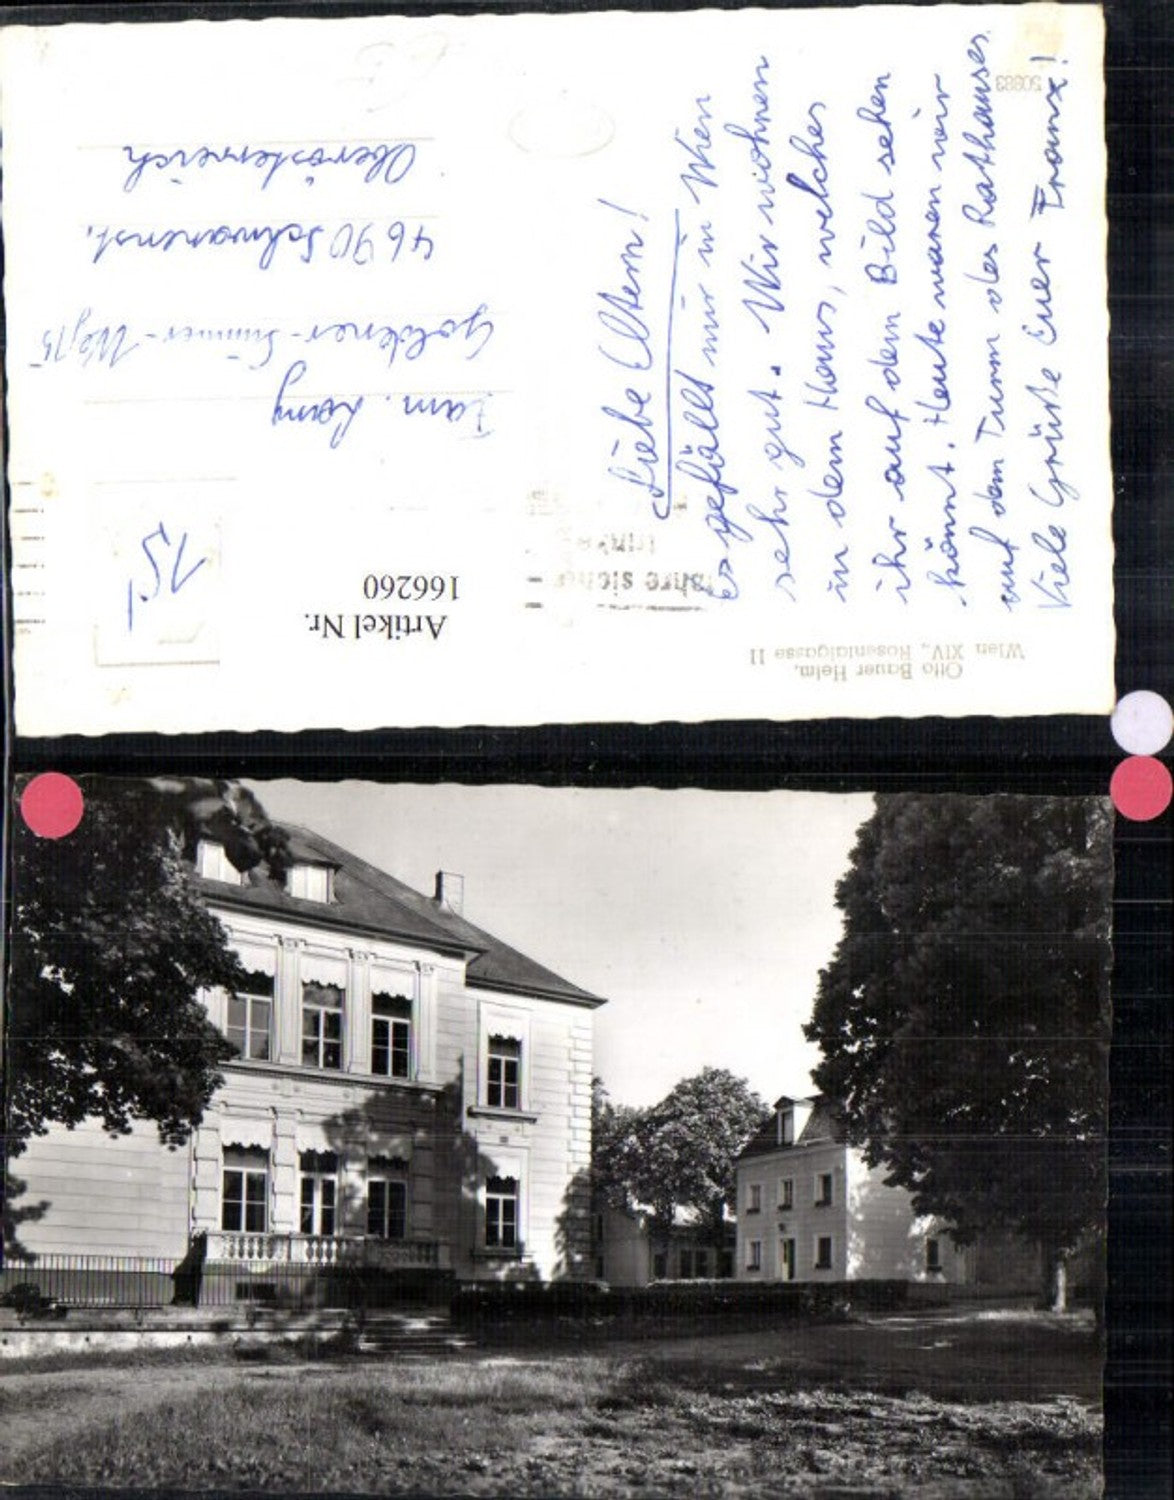 Liebe Eltern!
Es gefällt mir in Wien
sehr gut. Wir wohnen
in dem Haus, welches
ihr auf dem Bild sehen
könnt. Heute waren wir
auf dem Turm des Rathauses.
Viele Grüße Euer Franz!
Fam. Lamy
Goldener-Simmer-Weg 15
4690 Schwanenst.
Oberösterreich
Artikel Nr.
166260
151
Otto Bauer Heim,
Wien XIV., Rosentalgasse 11
50883